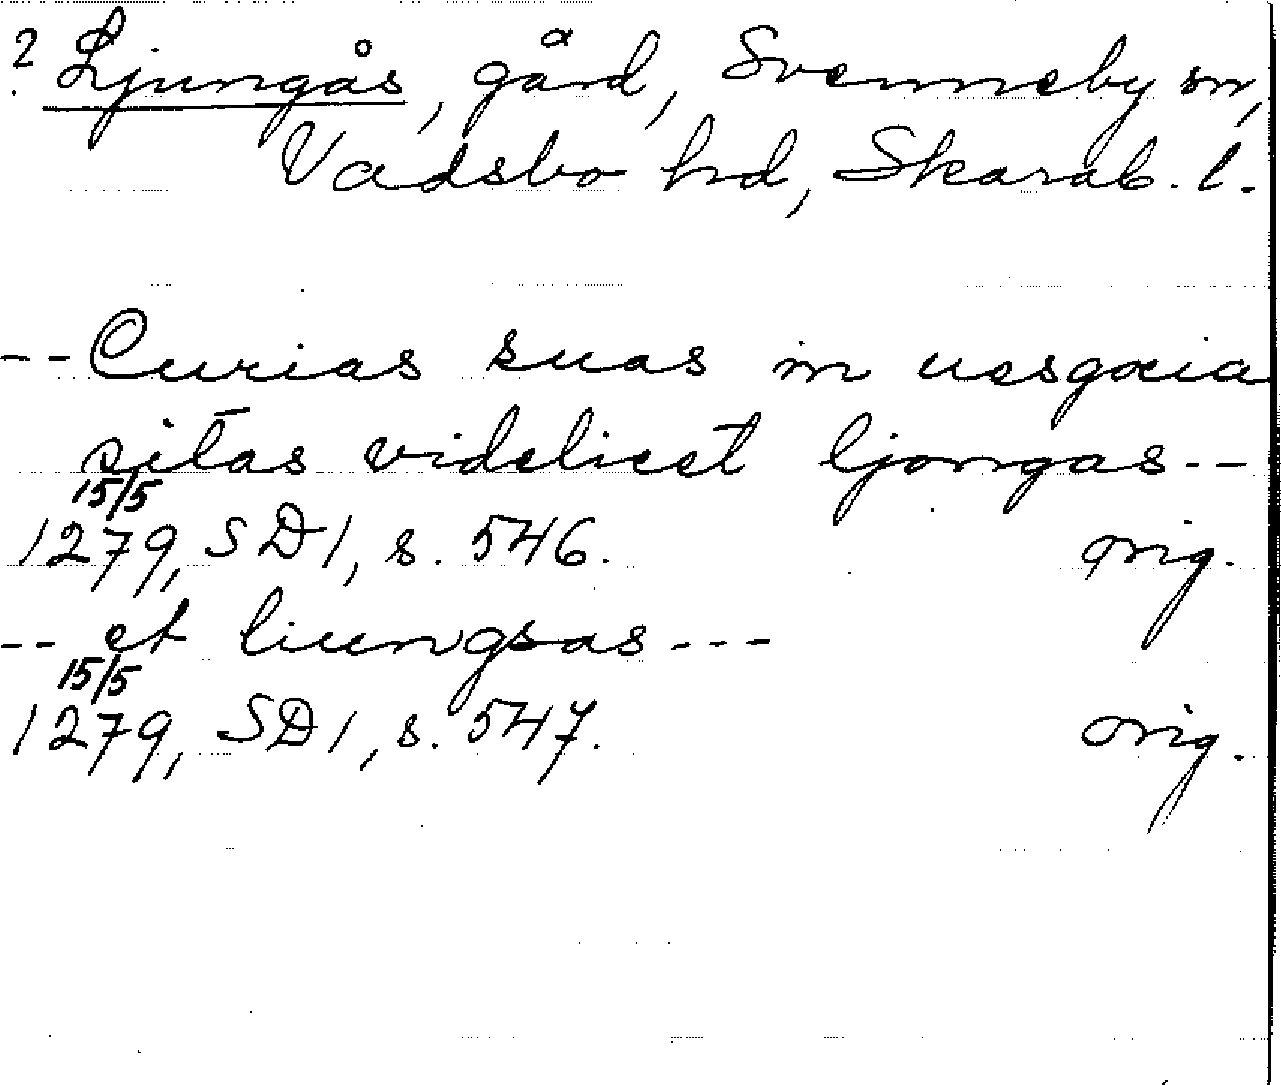 ? Ljungås, gård, Svenneby sn,
Vadsbo hd, Skarab. l.
-- Curias suas in uesgocia
sitas videlicet ljongas --
15/5
1279, SD 1, s. 546. orig.
-- et liungsas ---
15/5
1279, SD 1, s. 547. orig.